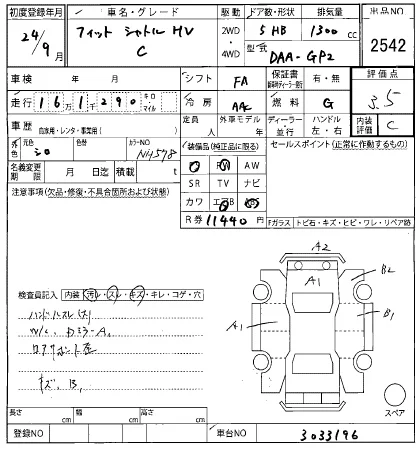 初度登録年月 車名・グレード 駆動 ドア数・形状 排気量 出品NO
24/9月 フィット シャトル HV C 2WD・4WD 5 HB 1300 cc 2542
型式 DAA-GP2
車検 年 月 シフト FA 保証書 有・無 評価点
走行 16万1千290 キロ・マイル 冷房 AAC 燃料 G 3.5
車歴 自家用・レンタ・事業用( ) 定員 人 外車モデル 年 ディーラー・並行 ハンドル 左・右 内装評価 C
外色 元色 シロ 色替 カラーNO NH578
装備品(純正品に限る) セールスポイント(正常に作動するもの)
名義変更期限 月 日迄 積載 t
AW
SR TV ナビ
カワ エアB
R券 11440 円
注意事項(欠品・修復・不具合箇所および状態)
Fガラス トビ石・キズ・ヒビ・ワレ・リペア跡
検査員記入 内装(汚レ・スレ・キズ・キレ・コゲ・穴
ハンドルスレ(大)
キズ、B1
A2
A1
B2
A1
B1
スペア
長さ cm 幅 cm 高さ cm
登録NO 車台NO 3033196